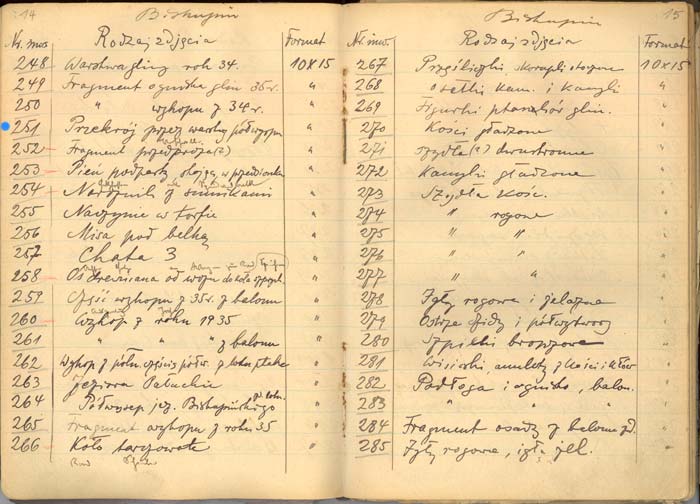 14 Biskupin
Nr. inw. Rodzaj zdjęcia Format
248 Warstwa gliny rok 34. 10X15
249 Fragment ogniska glin 35 r. "
250 " wykopu z 34 r. "
251 Przekrój przez warstwy półwyspu "
252 Fragment przedproża(?) "
253 Pień podparty stojący w przedsionku "
254 Narożnik z sumikami "
255 Naczynie w torfie "
256 Misa pod belką "
257 Chata 3 "
258 Oś drewniana od wozu do koła "
259 Część wykopu z 35 r. z balonu "
260 Wykop z roku 1935 "
261 " " " z balonu "
262 Wykop z półn. części półw. z lotu ptaka "
263 Jeziora Pałuckie "
264 Półwysep jez. Biskupińskiego "
265 Fragment wykopu z roku 35 "
266 Koło tarczowate "
Biskupin 15
Nr. inw. Rodzaj zdjęcia Format
267 Przęśliczki 10X15
268 Osełki kam. i kamyki "
269 Figurki ptaków glin. "
270 Kości gładzone "
271 Szydła (?) dwustronne "
272 Kamyki gładzone "
273 Szydła kośc. "
274 " rogowe "
275 " " "
276 " " "
277 " " "
278 Igły rogowe i żelazne "
279 Ostrze i "
280 Szpilki bronzowe "
281 Wisiorki, amulety z kości i kłów "
282 Podłoga i ognisko, balon. "
283 " " " "
284 Fragment osady z balonu "
285 Igły rogowe, igła żel. "